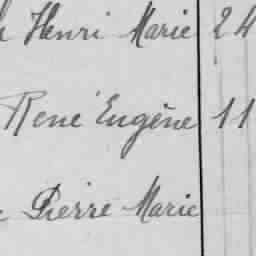 Henri Marie 24
René Eugène 11
Pierre Marie